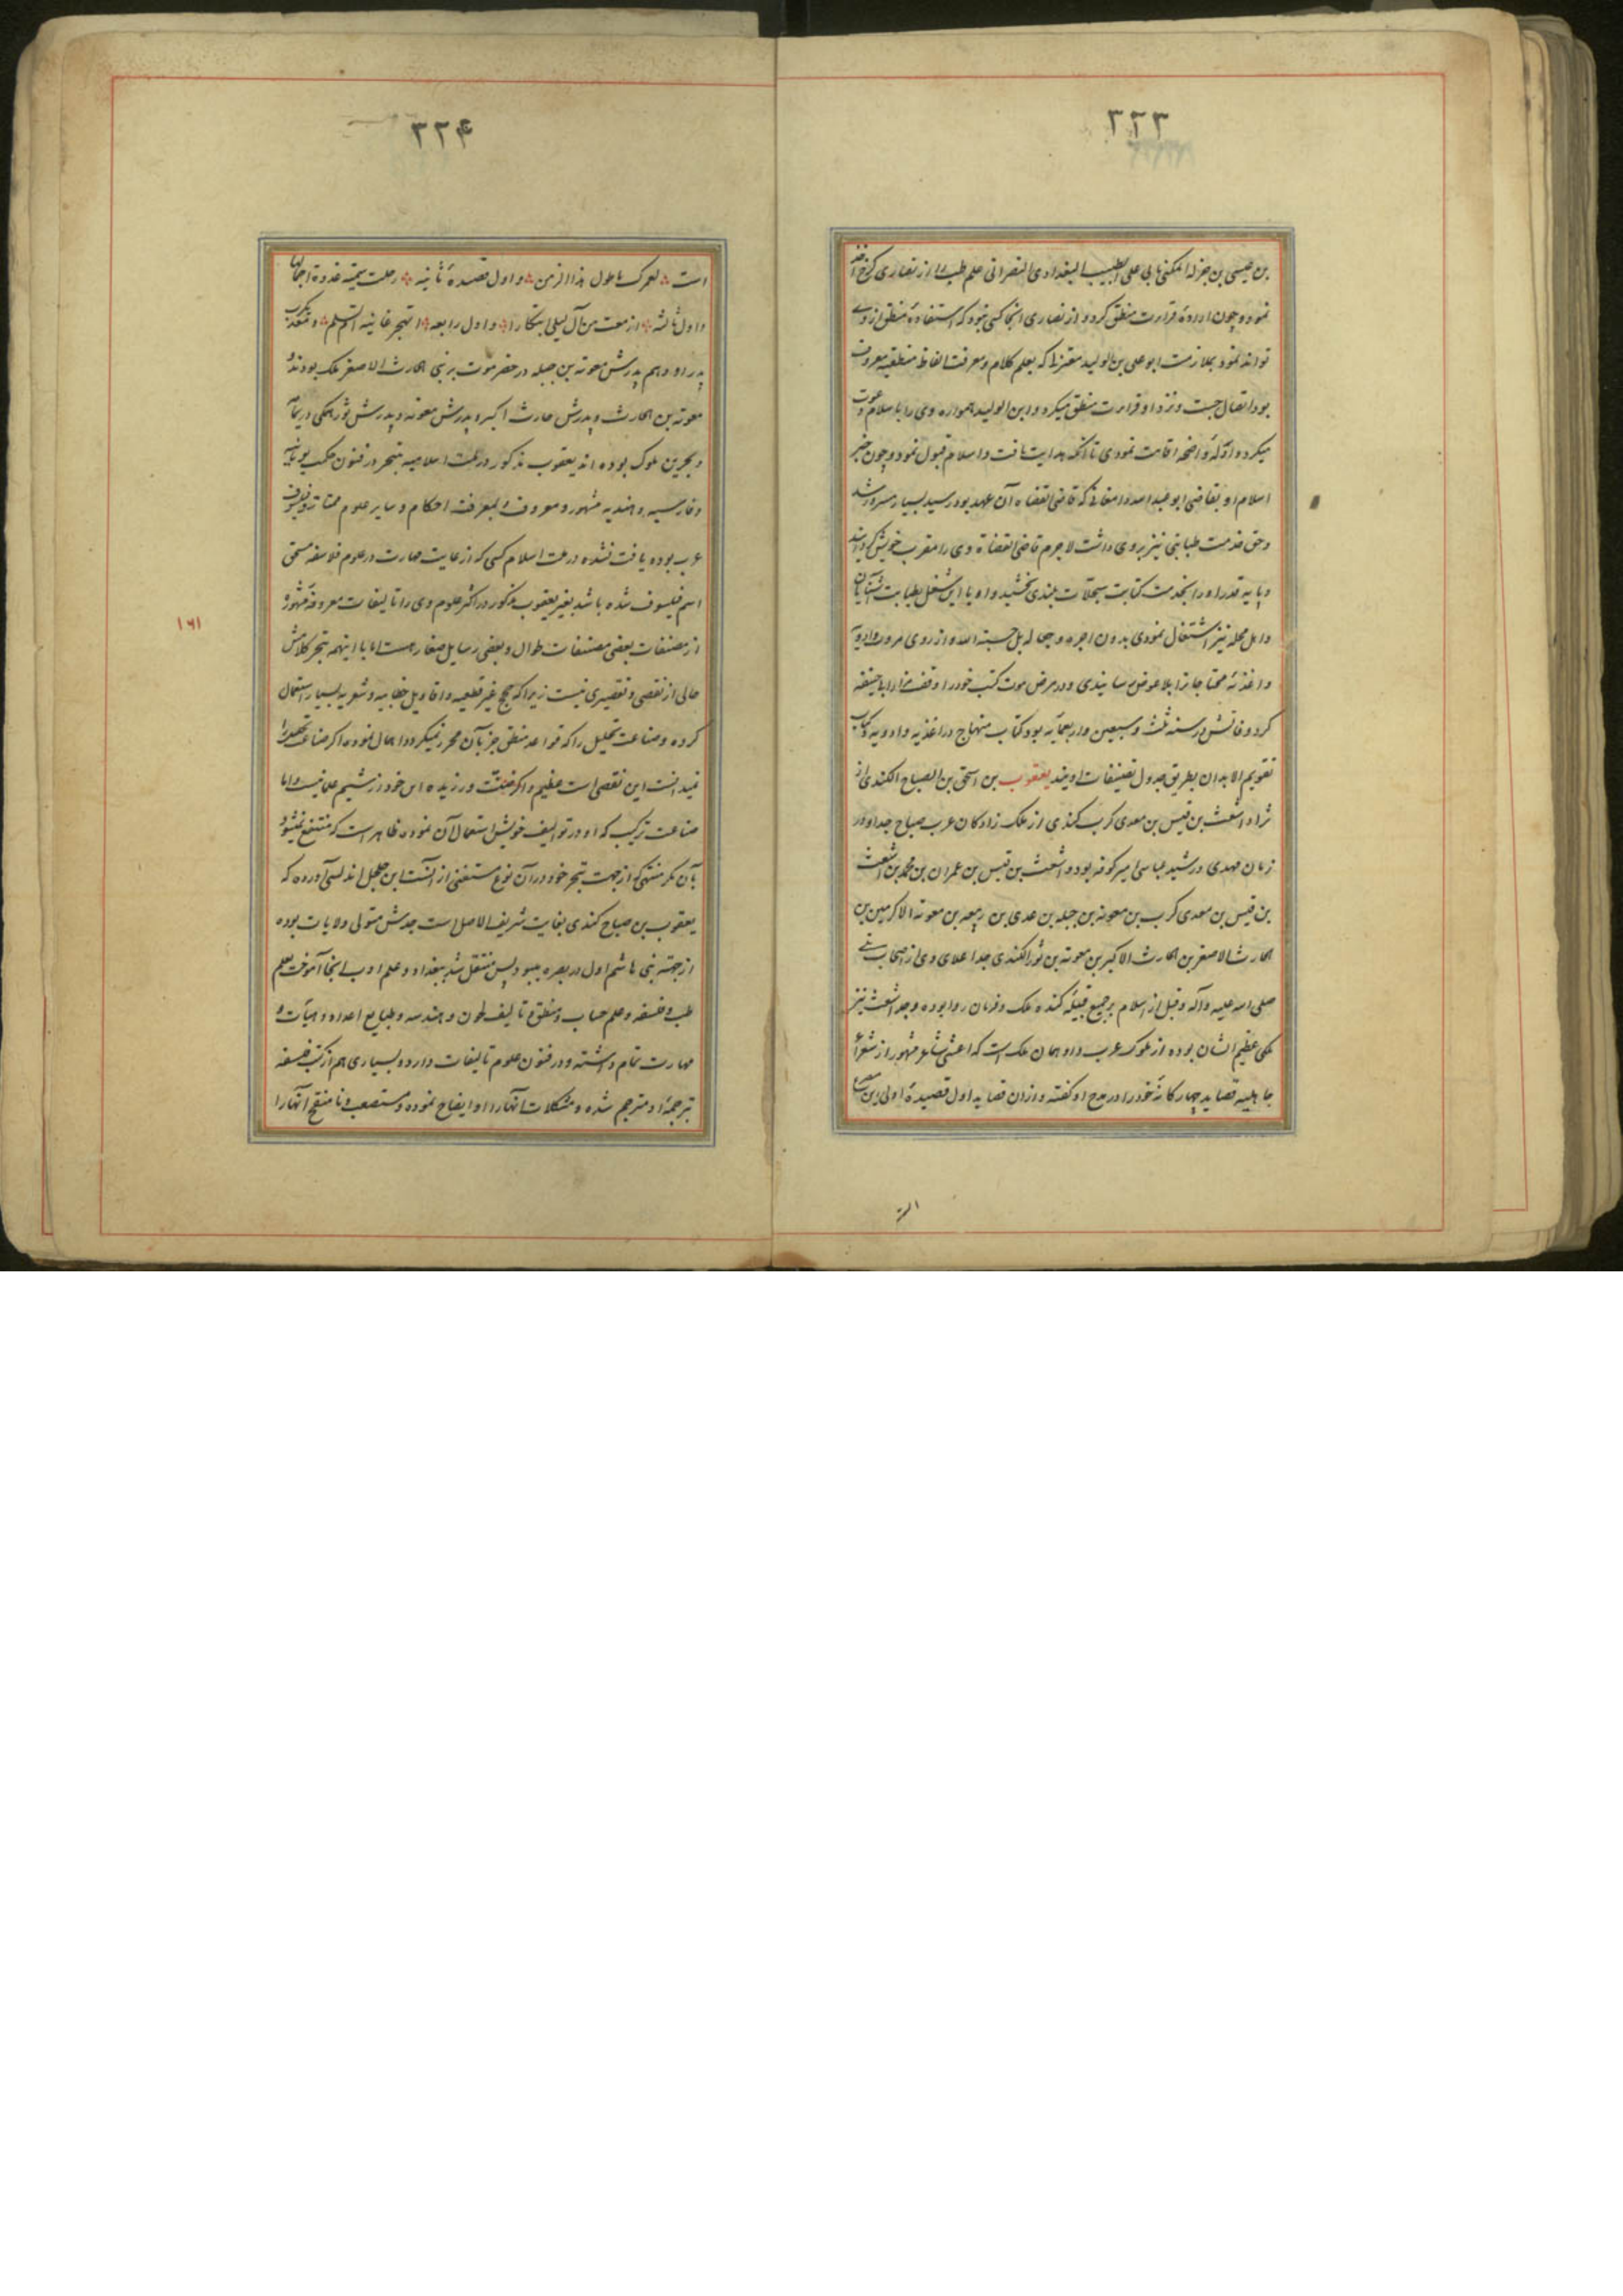 ۳۲۳
بن عیسی بن جزله المکنی بابی علی الطبیب البغدادی النصرانی علم طب را از نصاری کرخ اخذ
نمود و چون ارادهٔ قراءت منطق کرد و از نصاری انجا کسی نبود که استفادهٔ منطق از وی
تواند نمود بملازمت ابو علی بن الولید معتزلی که بعلم کلام و معرفت الفاظ منطقیه معروف
بود اتصال جست و نزد او قراءت منطق میکرد و ابن الولید همواره وی را باسلام دعوت
میکرد و ادلهٔ واضحه اقامت نمودی تا آنکه هدایت یافت و اسلام قبول نمود و چون خبر
اسلام او بقاضی ابو عبد الله دامغانی که قاضی القضاه آن عهد بود رسید بسیار مسرور شد
و حق خدمت طبابتی نیز بر وی داشت لاجرم قاضی القضاة وی را مقرب خویش گردانید
و پایه قدر او را بخدمت کتابت سجلات بلندی بخشید و او با این شغل بطبابت آشنایان
و اهل محله نیز اشتغال نمودی بدون اجره و جعاله بل حسبة الله و از روی مروت ادویه
و اغذیهٔ محتاجانرا بلاعوض رسانیدی و در مرض موت کتب خود را وقف مزار ابا حنیفه
کرد وفاتش در سنه ثلث و سبعین و اربعمایه بود کتاب منهاج در اغذیه و ادویه و کتاب
تقویم الابدان بطریق جدول تصنیفات اویند یعقوب بن اسحق بن الصباح الکندی از
نژاد اشعث بن قیس بن معدی کرب کندی از ملک زادگان عرب صباح جد او در
زمان مهدی و رشید عباسی امیر کوفه بود و اشعث بن قیس بن عمران بن محمد بن اشعث
بن قیس بن معدی کرب بن معویه بن جبله بن عدی بن ربیعه بن معویه الاکرمین بن
الحارث الاصغر بن الحارث الاکبر بن معویه بن ثور الکندی جد اعلای وی از اصحاب نبی
صلی الله علیه و آله و قبل از اسلام بر جمیع قبیلهٔ کنده ملک و فرمان روا بوده و جد اشعث نیز
ملکی عظیم الشان بوده از ملوک عرب و او همان ملک است که اعشی شاعر مشهور از شعرأ
جاهلیه قصاید چهارگانهٔ خود را در مدح او گفته و از ان قصاید اول قصیدهٔ اولی این
۳۲۴
است لعمرک ما طول هذا الزمن و اول قصیدهٔ ثانیه رحلت سمیة غدوة اجمالها
و اول ثالثه ازمعت من آل لیلی ابتکارا و اول رابعه اتهجر غانیه ام تلم و معدیکرب
پدر او و هم پدرش معویه بن جبله در حضرموت بر بنی الحارث الاصغر ملک بودند و
معویه بن الحارث و پدرش حارث اکبر و پدرش معویه و پدرش ثور همگی در یمامه
و بحرین ملوک بوده اند یعقوب مذکور در ملت اسلامیه متبحر در فنون حکمت یونانیه
و فارسیه و هندیه مشهور و معروف و بمعرفت احکام و سایر علوم ممتاز و فیلسوف
عرب بوده یافت نشده در ملت اسلام کسی که از غایت مهارت در علوم فلاسفه مستحق
اسم فیلسوف شده باشد بغیر یعقوب مذکور در اکثر علوم وی را تالیفات معروفه مشهوره
از مصنفات بعضی مصنفات طوال و بعضی رسایل صغار هست اما با اینهمه تبحر کلامش
خالی از نقصی و تقصیری نیست زیرا که حجج غیر قطعیه و اقاویل خطابیه و شعریه بسیار استعمال
کرده و صناعت تحلیل را که قواعد منطق جز بآن محرر نمیگردد اهمال نموده اگر صناعت تحلیل را
نمیدانست این نقصی است عظیم و اگر ضنّت ورزیده این خود از شیم علما نیست و اما
صناعت ترکیب که او در توالیف خویش استعمال آن نموده ظاهر است که منتفع نمیشود
بآن مگر منتهی که از جهت تبحر خود در آن نوع مستغنی از آنست ابن جلجل اندلسی آورده که
یعقوب بن صباح کندی بغایت شریف الاصل است جدش متولی ولایات بوده
از جهته بنی هاشم اول در بصره میبود پس منتقل شد ببغداد و علم ادب انجا آموخت بعلم
طب و فلسفه و علم حساب و منطق و تالیف لحون و هندسه و طبایع اعداد و هیأت و
مهارت تمام داشته و در فنون علوم تالیفات دارد و بسیاری هم از کتب فلسفه
بترجمهٔ او مترجم شده و مشکلات آنها را او ایضاح نموده و مستصعب و نا منقح آنها را
۱۶۱